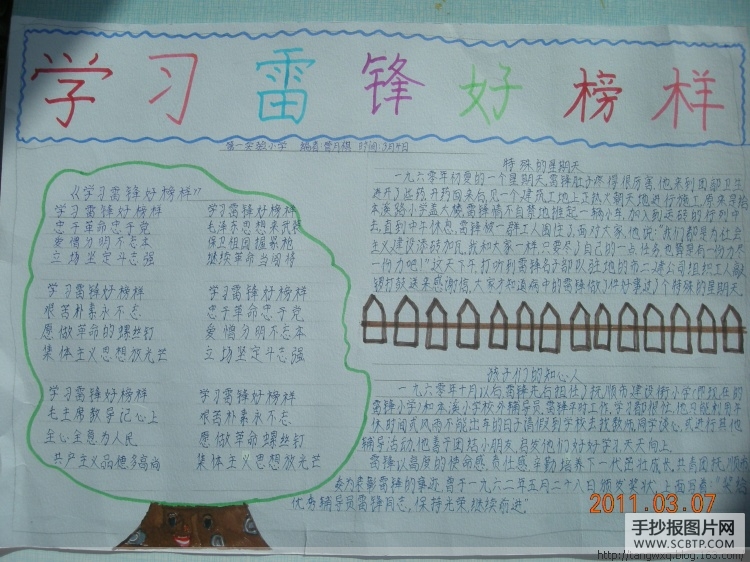 学习雷锋好榜样
第一实验小学 编者:曹月祺 时间:3月4日
《学习雷锋好榜样》
学习雷锋好榜样
忠于革命忠于党
爱憎分明不忘本
立场坚定斗志强
学习雷锋好榜样
毛泽东思想来武装
保卫祖国握紧枪
继续革命当闯将
学习雷锋好榜样
艰苦朴素永不忘
愿做革命的螺丝钉
集体主义思想放光芒
学习雷锋好榜样
忠于革命忠于党
爱憎分明不忘本
立场坚定斗志强
学习雷锋好榜样
毛主席教导记心上
全心全意为人民
共产主义品德多高尚
学习雷锋好榜样
艰苦朴素永不忘
愿做革命螺丝钉
集体主义思想放光芒
特殊的星期天
一九六零年初夏的一个星期天,雷锋肚子疼得很厉害,他来到团部卫生
进开了些药,开药回来,见一个建筑工地上正热火朝天地进行施工,原来是给
本溪路小学盖大楼,雷锋情不自禁地推起一辆小车,加入到运砖的行列中
去,直到中午休息,雷锋被一群工人围住了,面对大家,他说:"我们都是为社会
主义建设添砖加瓦,我和大家一样,只要尽了自己的一点任务,也算是有一份力尽
一份力吧!"这天下午打听到雷锋名字部队驻地的市二建公司组织工人敲
锣打鼓送来感谢信,大家才知道病中的雷锋做了件好事,过了个特殊的星期天。
孩子们的知心人
一九六零年十月以后雷锋先后担任了抚顺市建设街小学(现在的
雷锋小学)和本溪小学校外辅导员,雷锋平时工作,学习都很忙,他只能利用午
休时间或风雨不能出车的日子请假到学校去找教师,同学谈心,或进行其他
辅导活动,他善于团结小朋友,启发他们好好学习天天向上。
雷锋以高度的使命感,责任感,辛勤培养下一代茁壮成长,共青团抚顺
委为表彰雷锋的事迹,曾于一九六二年五月二十八日颁发奖状,上面写着:"奖给
优秀辅导员雷锋同志,保持光荣,继续前进"
2011.03.07
手抄报图片网
WWW.SCBTP.COM
http://tangwxq.blog.163.com/